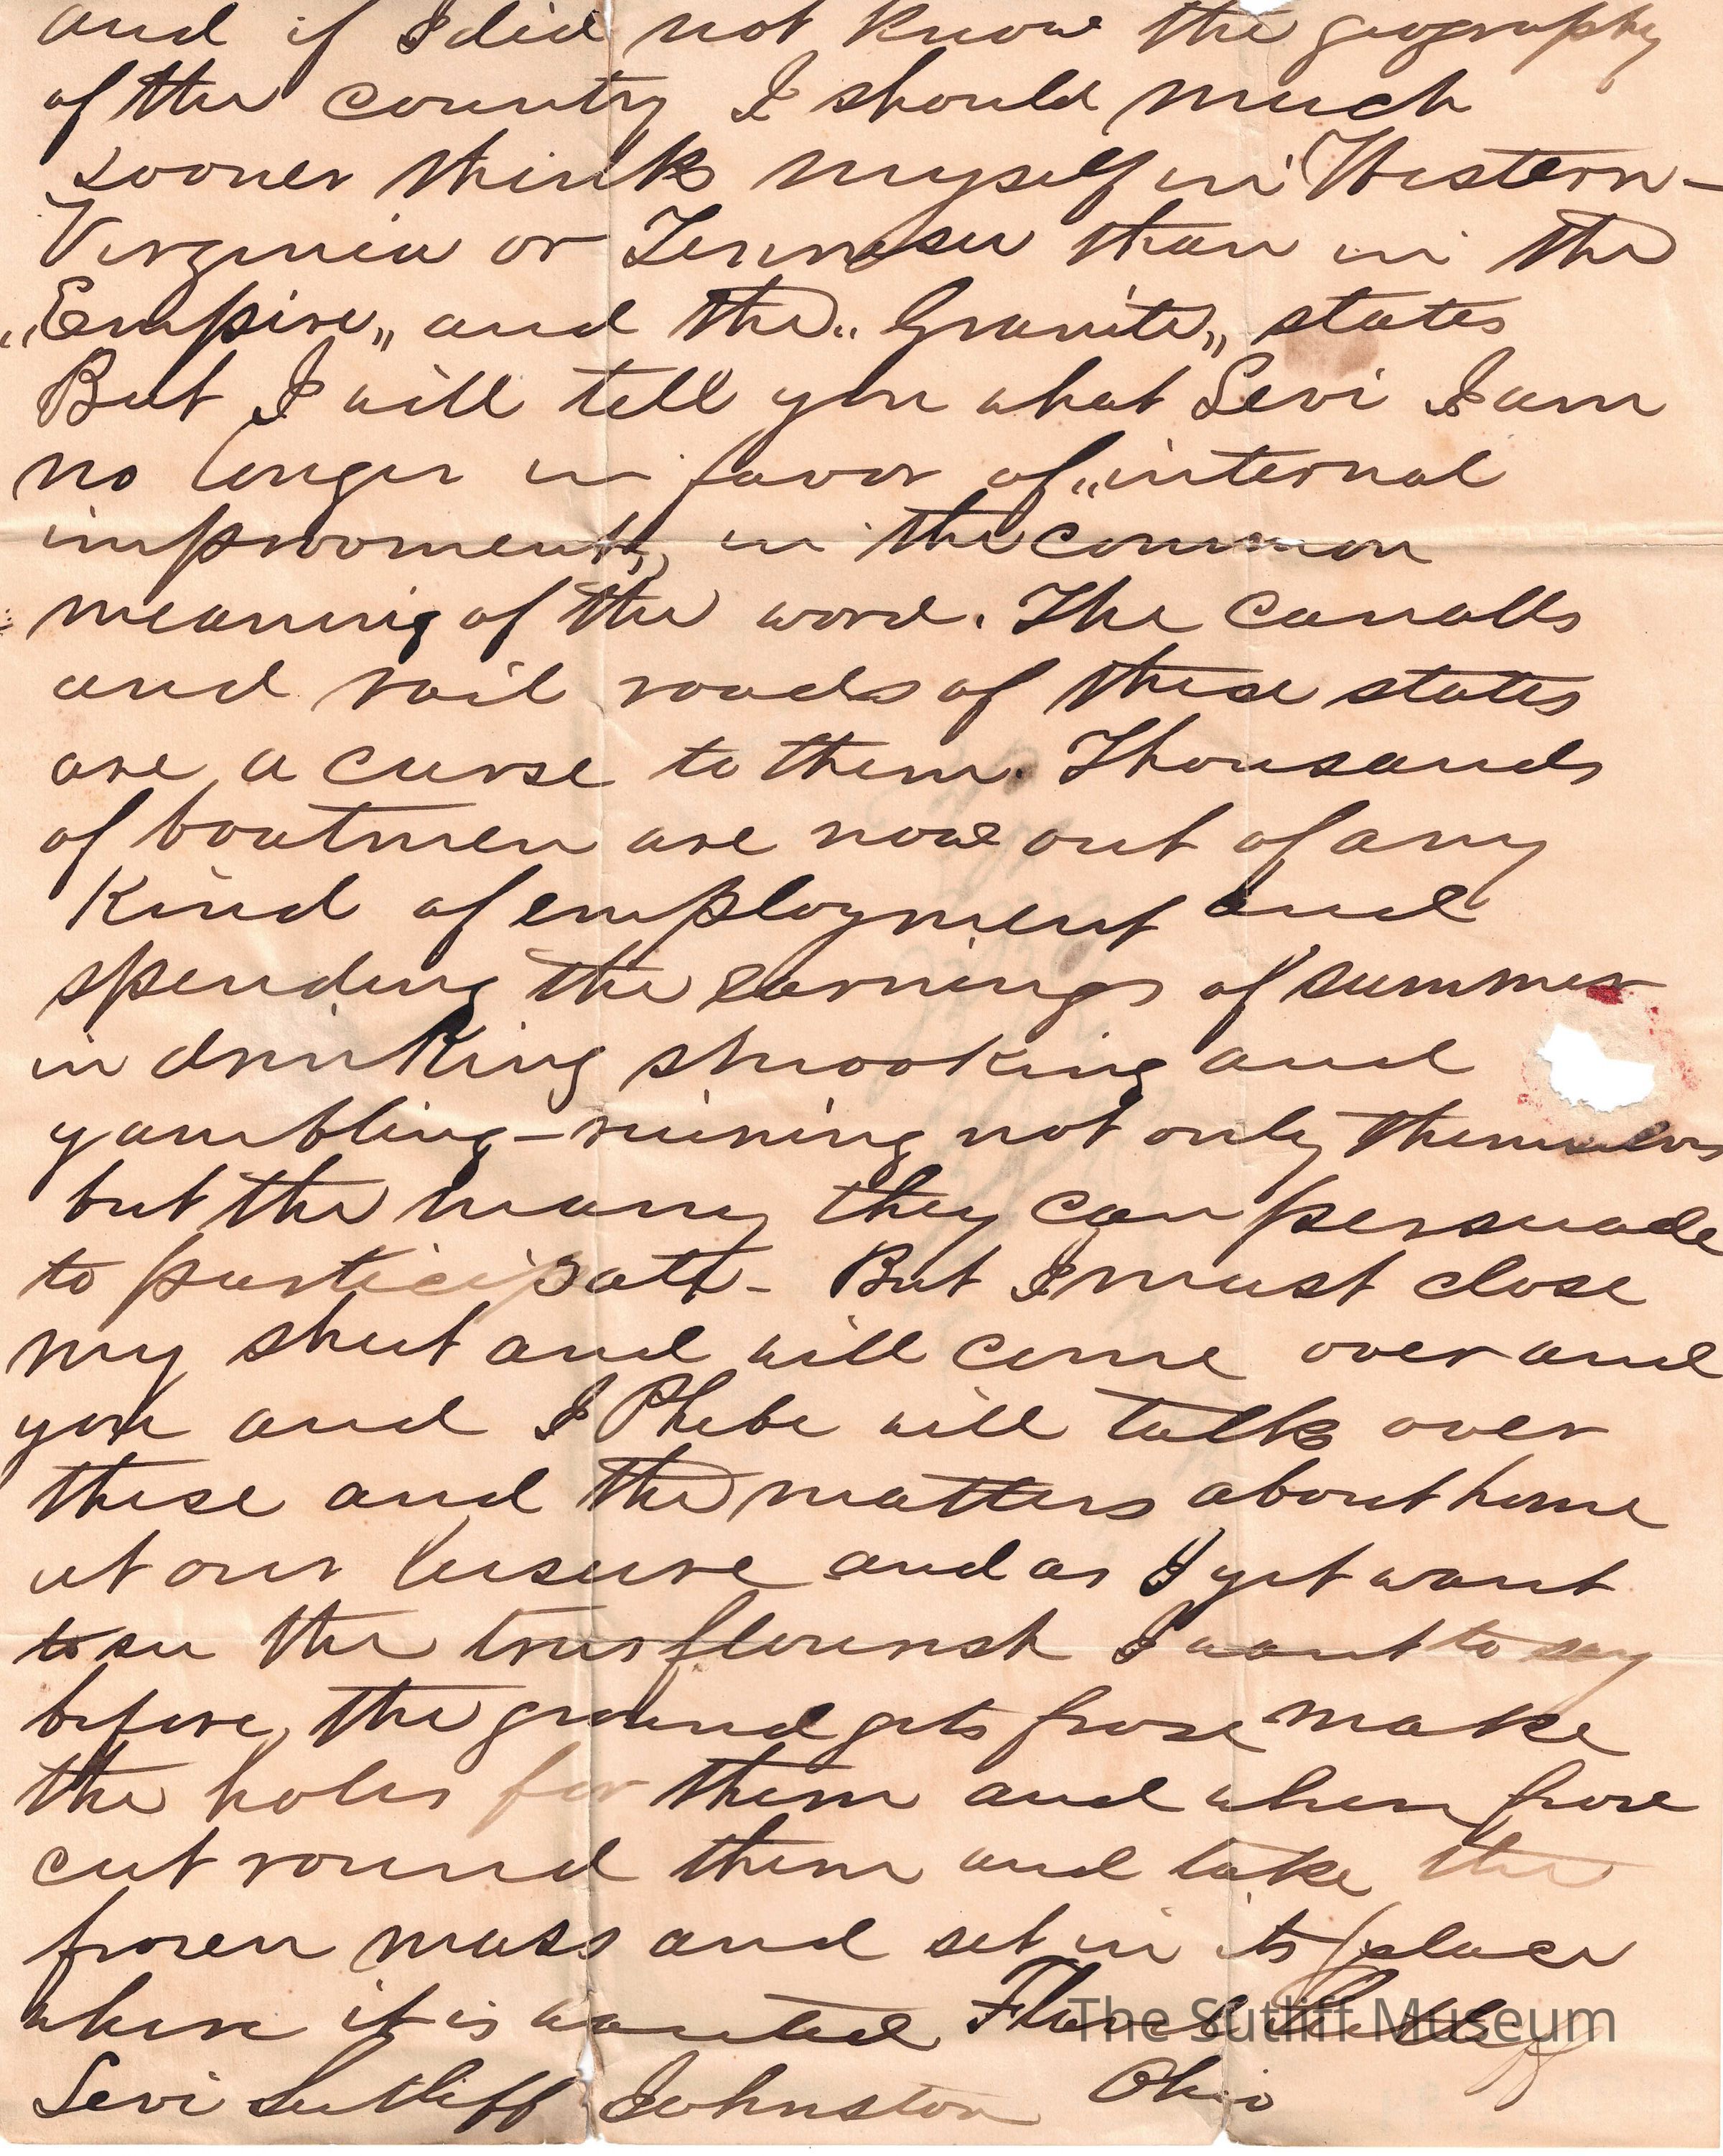 and if I did not know the geography
of the country I should much
sooner think myself in Western-
Virginia or Tennesee than in the
„Empire„ and the „Granite„ states
But I will tell you what Levi I am
no longer in favor of „internal
improvoments„ in the common
meaning of the word. The canalls
and rail roads of these states
are a curse to them. Thousands
of boatmen are now out of any
kind of employment and
spending the earnings of summer
in drinking smooking and
gambling - ruining not only themselvs
but the many they can persuade
to participate - But I must close
my sheet and will come over and
you and I Phebe will talk over
these and the matters about home
at our leisure and as I yet want
to see the trees flourish I want to say
before the ground gets froze make
the holes for them and when froze
cut round them and take the
frozen mass and set in its place
where it is wanted Flavel Sutliff
Levi Sutliff Johnston Ohio
The Sutliff Museum